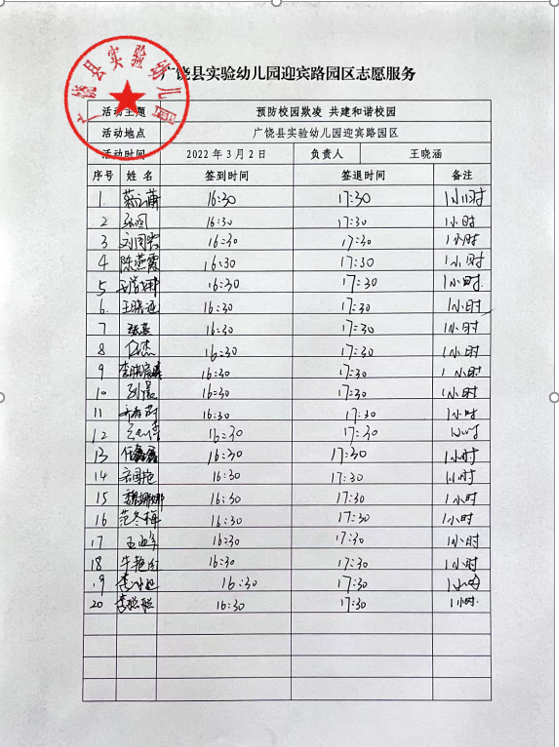 广饶县实验幼儿园迎宾路园区志愿服务
广饶县实验幼儿园
活动主题 预防校园欺凌 共建和谐校园
活动地点 广饶县实验幼儿园迎宾路园区
活动时间 2022年3月2日 负责人 王晓涵
序号 姓名 签到时间 签退时间 备注
1. 16:30 17:30 1小时
2 16:30 17:30 1小时
3 16:30 17:30 1小时
4 陈燕霞 16:30 17:30 1小时
5 16:30 17:30 1小时
6. 16:30 17:30 1小时
7 16:30 17:30 1小时
8 任杰 16:30 17:30 1小时
9 16:30 17:30 1小时
10 16:30 17:30 1小时
11 16:30 17:30 1小时
12 16:30 17:30 1小时
13 16:30 17:30 1小时
14 16:30 17:30 1小时
15 16:30 17:30 1小时
16 范冬梅 16:30 17:30 1小时
17 16:30 17:30 1小时
18 16:30 17:30 1小时
19 16:30 17:30 1小时
20 李聪聪 16:30 17:30 1小时.